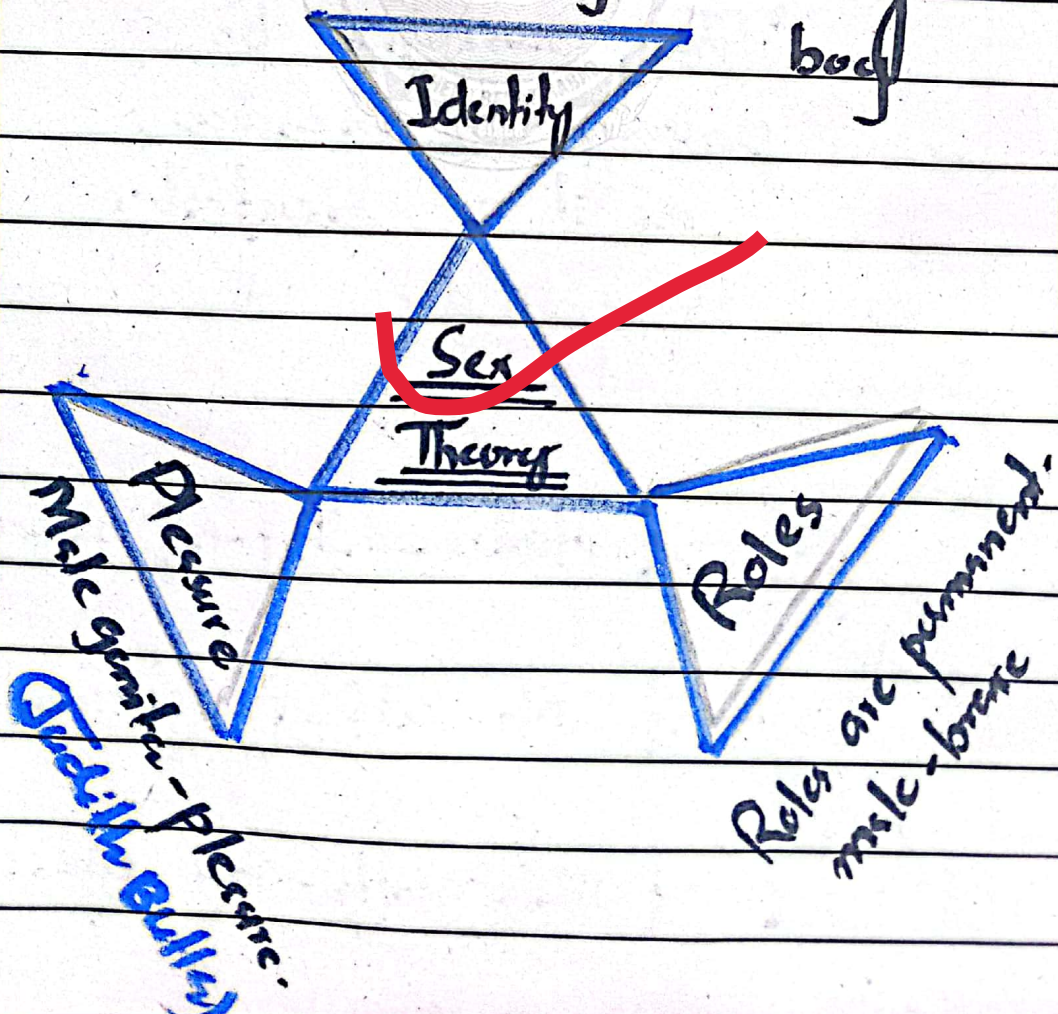 body
Identity
Sex
Theory
Pleasure
Male genita - Plesure.
Roles
Roles are permanent.
male - brave